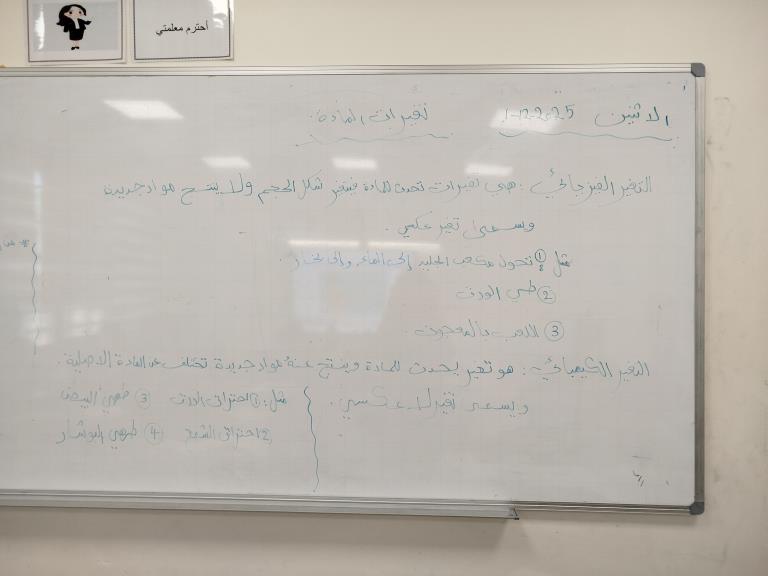 أحترم معلمتي
الاثنين 1-12-2025
تغيرات المادة
التغير الفيزيائي: هي تغيرات تحدث للمادة فيتغير شكل الحجم ولا ينتج مواد جديدة
ويسمى تغير عكسي.
مثل ① تحول مكعب الجليد إلى الماء وإلى بخار
② طي الورق
③ اللعب بالمعجون.
التغير الكيميائي: هو تغير يحدث للمادة وينتج عنه مواد جديدة تختلف عن المادة الاصلية.
ويسمى تغير لا عكسي.
مثل: ① احتراق الورق ③ طهي البيض
② احتراق الشمع ④ طهي